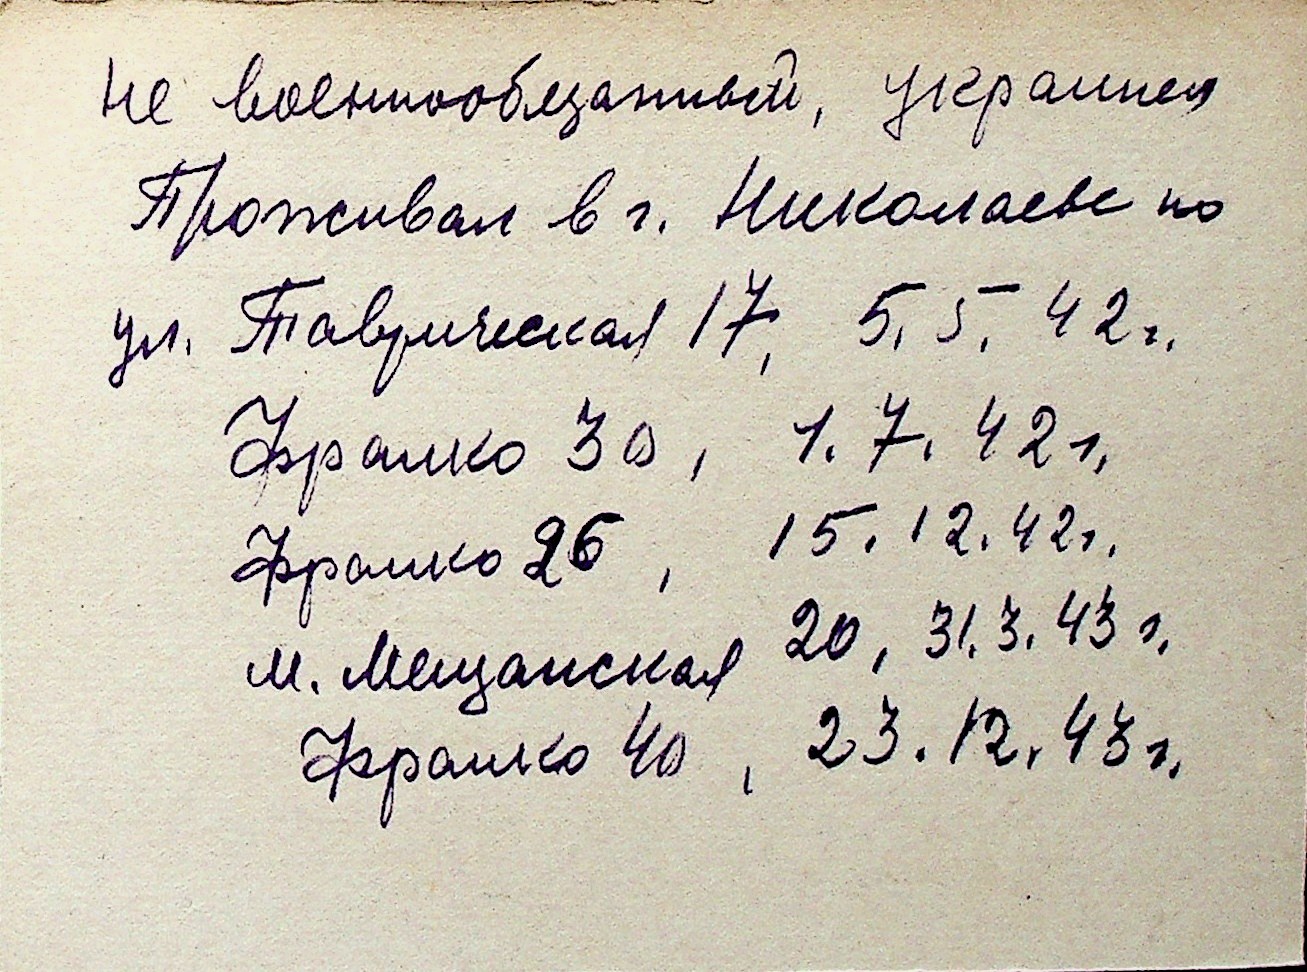 Не военнообязанный, украинец
Проживал в г. Николаеве по
ул. Таврическая 17, 5.5.42г.
Франко 30, 1.7.42г.
Франко 26, 15.12.42г.
м. Мещанская 20, 31.3.43г.
Франко 40, 23.12.43г.